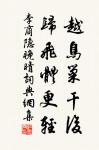 越鳥巢干後
歸飛體更輕
李商隱晚晴詞典網集